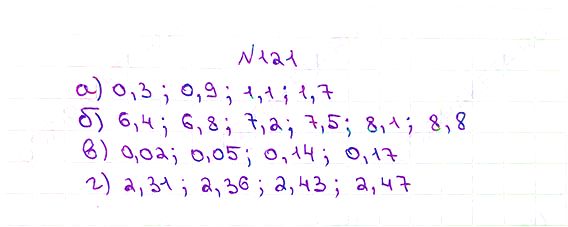 N121
а) 0,3 ; 0,9 ; 1,1 ; 1,7
б) 6,4 ; 6,8 ; 7,2 ; 7,5 ; 8,1 ; 8,8
в) 0,02 ; 0,05 ; 0,14 ; 0,17
г) 2,31 ; 2,36 ; 2,43 ; 2,47